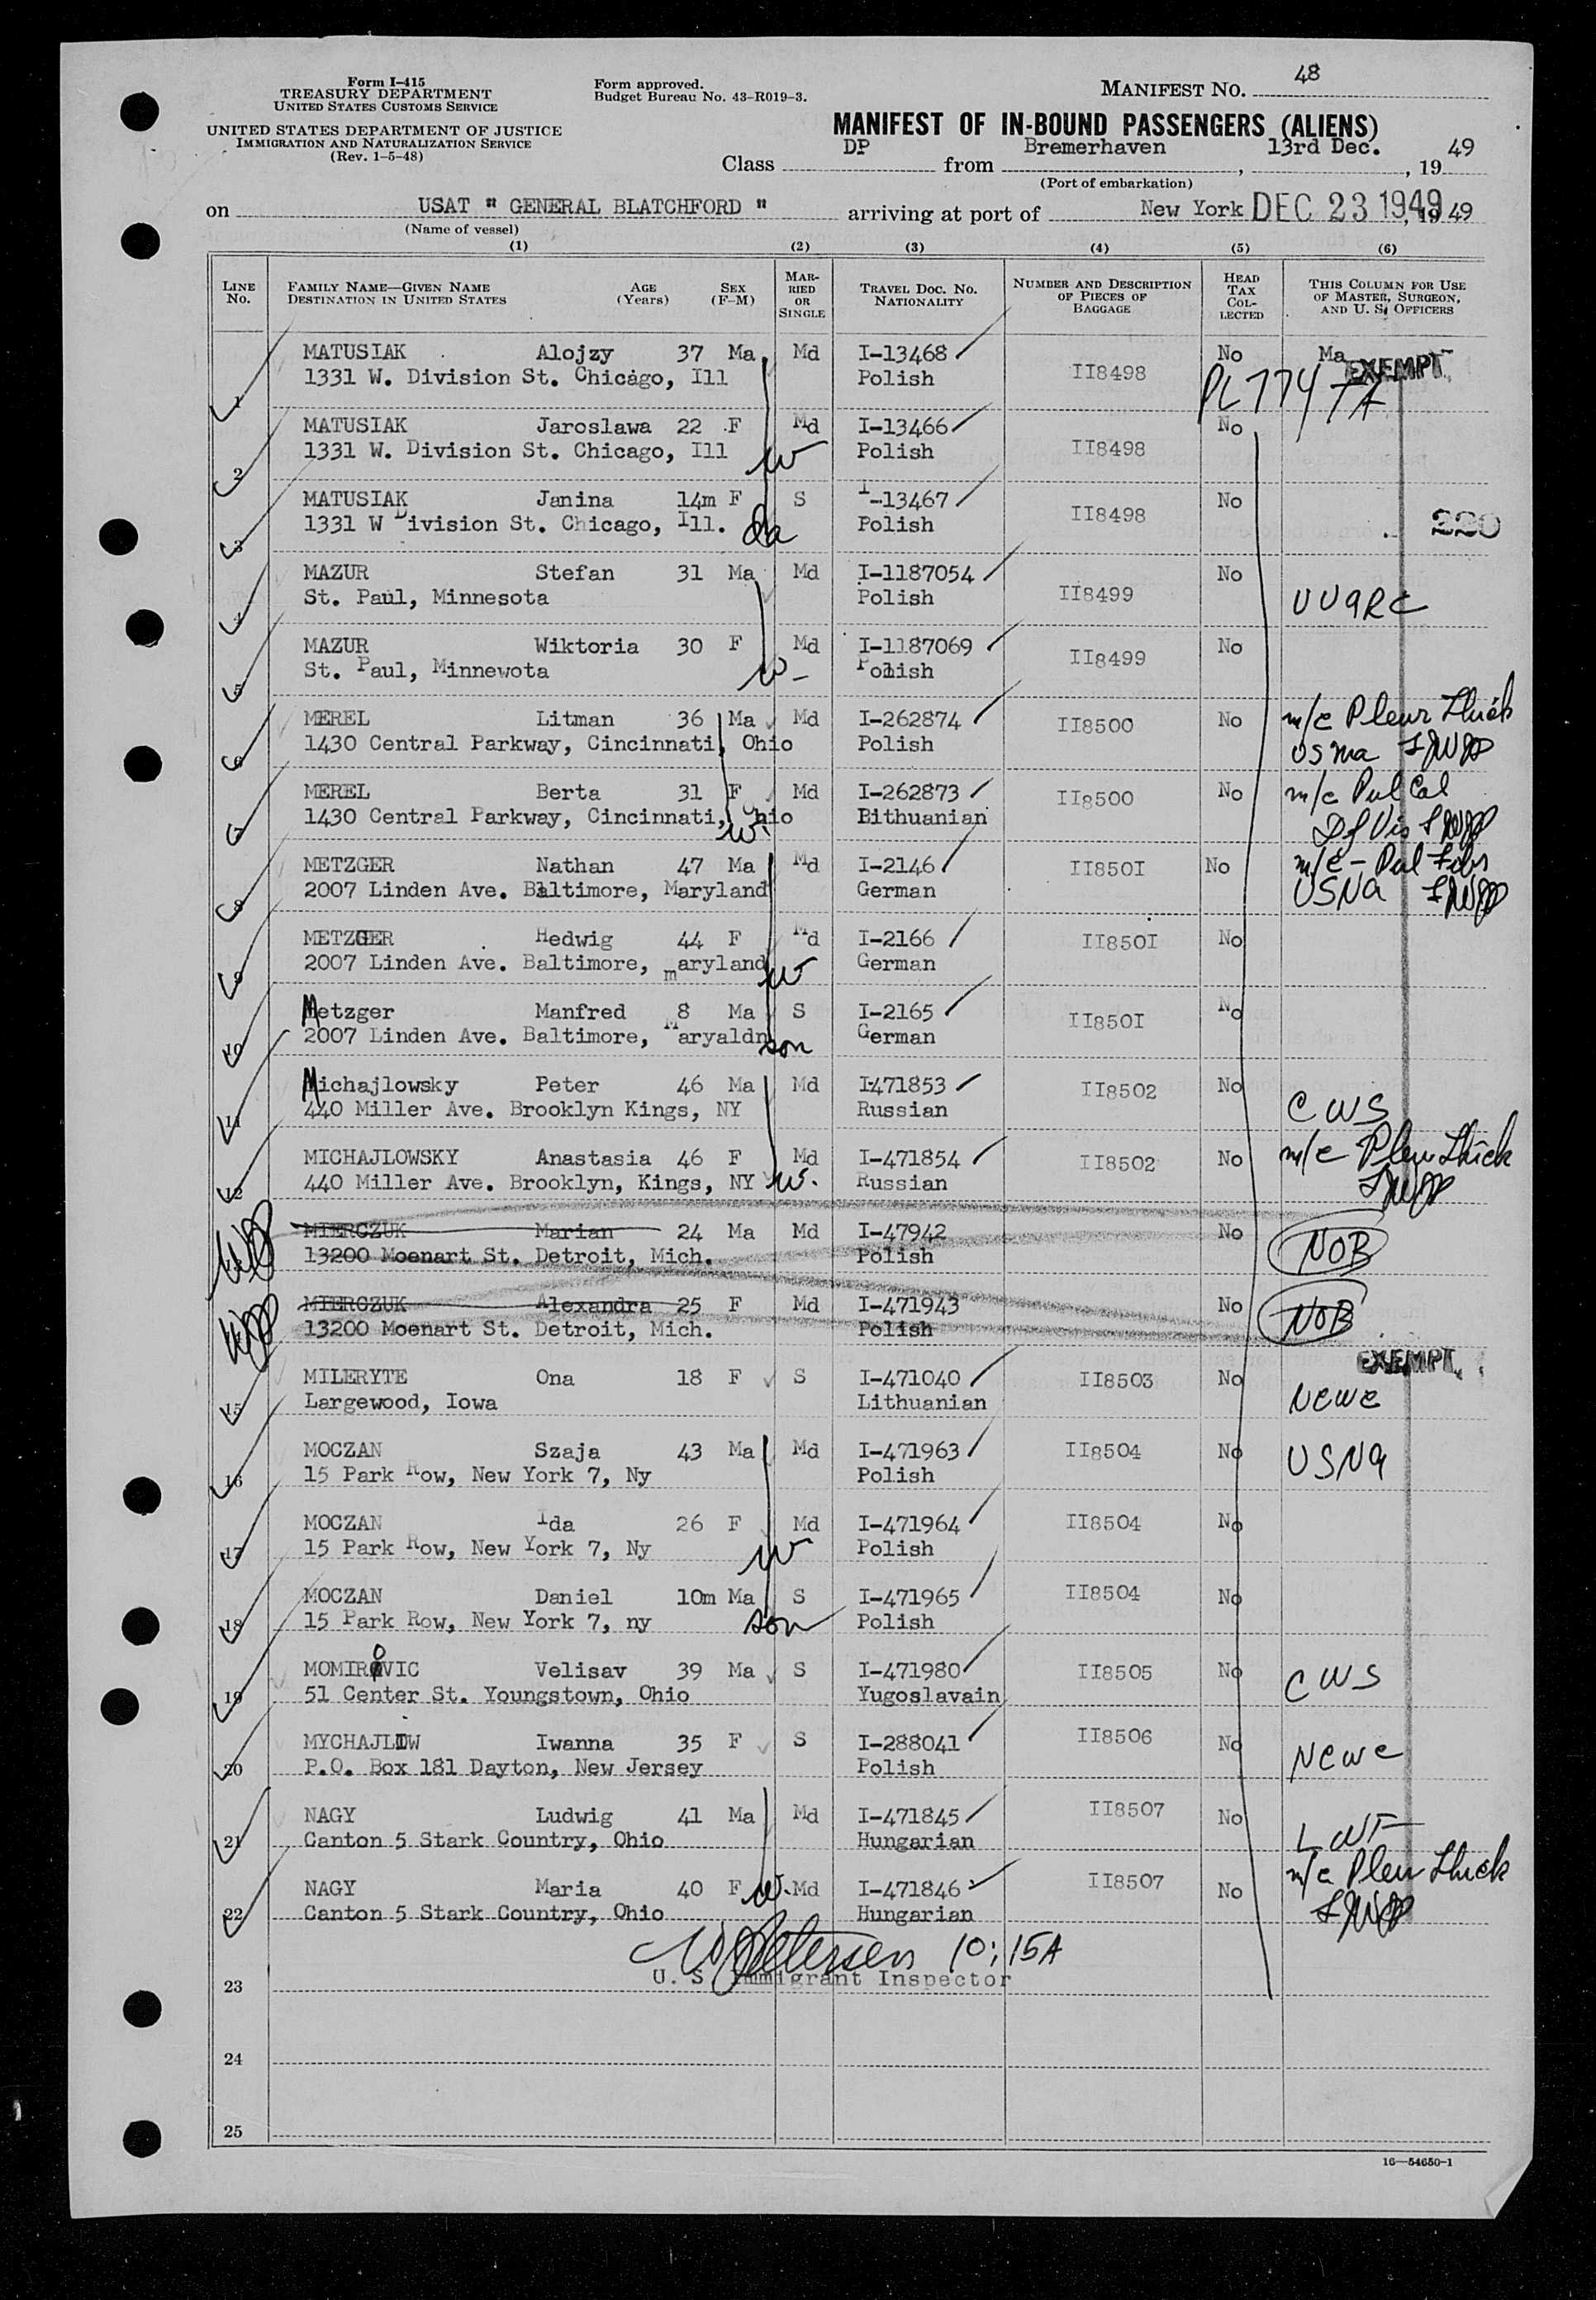 Form I-415
TREASURY DEPARTMENT
UNITED STATES CUSTOMS SERVICE
UNITED STATES DEPARTMENT OF JUSTICE
IMMIGRATION AND NATURALIZATION SERVICE
(Rev. 1-5-48)
Form approved.
Budget Bureau No. 43-R019-3.
MANIFEST NO. 48
MANIFEST OF IN-BOUND PASSENGERS (ALIENS)
Class DP from Bremerhaven, 13rd Dec., 1949
(Port of embarkation)
on USAT " GENERAL BLATCHFORD " arriving at port of New York DEC 23 1949, 1949
(Name of vessel)
(1) (2) (3) (4) (5) (6)
LINE No. FAMILY NAME—GIVEN NAME DESTINATION IN UNITED STATES AGE (Years) SEX (F-M) MARRIED OR SINGLE TRAVEL DOC. NO. NATIONALITY NUMBER AND DESCRIPTION OF PIECES OF BAGGAGE HEAD TAX COLLECTED THIS COLUMN FOR USE OF MASTER, SURGEON, AND U. S. OFFICERS
1 MATUSIAK Alojzy 37 Ma Md I-13468 II8498 No Ma EXEMPT
1331 W. Division St. Chicago, Ill Polish PL 774 7A
2 MATUSIAK Jaroslawa 22 F Md I-13466 II8498 No
1331 W. Division St. Chicago, Ill W Polish
3 MATUSIAK Janina 14m F S I-13467 II8498 No
1331 W Division St. Chicago, Ill. da Polish 220
4 MAZUR Stefan 31 Ma Md I-1187054 II8499 No
St. Paul, Minnesota Polish UUARC
5 MAZUR Wiktoria 30 F Md I-1187069 II8499 No
St. Paul, Minnewota W- Polish
6 MEREL Litman 36 Ma Md I-262874 II8500 No m/c Pleur Thick
1430 Central Parkway, Cincinnati, Ohio Polish USNA
7 MEREL Berta 31 F Md I-262873 II8500 No m/c Pul Cal
1430 Central Parkway, Cincinnati, Ohio W. Bithuanian Df Vis
8 METZGER Nathan 47 Ma Md I-2146 II850I No m/c - Pul Fibs
2007 Linden Ave. Baltimore, Maryland German USNA
9 METZGER Hedwig 44 F Md I-2166 II850I No
2007 Linden Ave. Baltimore, maryland W German
10 Metzger Manfred 8 Ma S I-2165 II850I No
2007 Linden Ave. Baltimore, Maryaldn son German
11 Michajlowsky Peter 46 Ma Md I-471853 II8502 No
440 Miller Ave. Brooklyn Kings, NY Russian CWS
12 MICHAJLOWSKY Anastasia 46 F Md I-471854 II8502 No m/c Pleu Thick
440 Miller Ave. Brooklyn, Kings, NY W. Russian
MIERCZUK Marian 24 Ma Md I-47942 No NOB
13200 Moenart St. Detroit, Mich. Polish
MIERCZUK Alexandra 25 F Md I-471943 No NOB
13200 Moenart St. Detroit, Mich. Polish
EXEMPT
15 MILERYTE Ona 18 F S I-471040 II8503 No
Largewood, Iowa Lithuanian NCWC
16 MOCZAN Szaja 43 Ma Md I-471963 II8504 No USNA
15 Park Row, New York 7, Ny Polish
17 MOCZAN Ida 26 F Md I-471964 II8504 No
15 Park Row, New York 7, Ny W Polish
18 MOCZAN Daniel 10m Ma S I-471965 II8504 No
15 Park Row, New York 7, ny son Polish
19 MOMIROVIC Velisav 39 Ma S I-471980 II8505 No CWS
51 Center St. Youngstown, Ohio Yugoslavain
20 MYCHAJLIW Iwanna 35 F S I-288041 II8506 No NCWC
P.O. Box 181 Dayton, New Jersey Polish
21 NAGY Ludwig 41 Ma Md I-471845 II8507 No
Canton 5 Stark Country, Ohio Hungarian LWF
22 NAGY Maria 40 F W. Md I-471846 II8507 No m/c Pleu Thick
Canton 5 Stark Country, Ohio Hungarian
Petersen 10:15A
23 U. S. Immigrant Inspector
24
25
16—54650-1